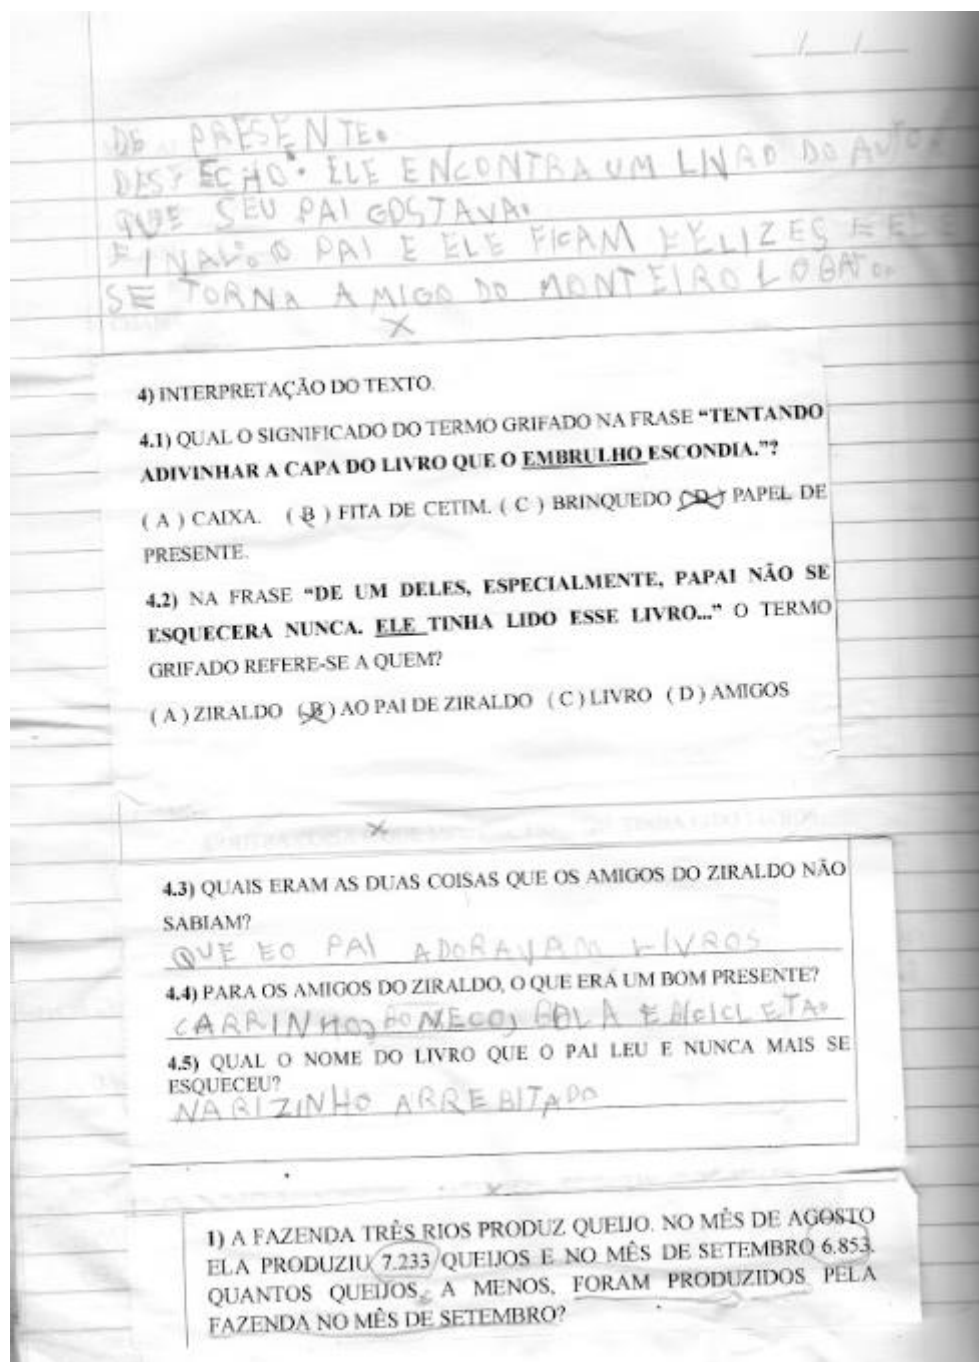 __/__/__
DE PRESENTE.
DESFECHO: ELE ENCONTRA UM LIVRO DO AUTOR
QUE SEU PAI GOSTAVA.
FINAL: O PAI E ELE FICAM FELIZES E ELE
SE TORNA AMIGO DO MONTEIRO LOBATO.
X
4) INTERPRETAÇÃO DO TEXTO.
4.1) QUAL O SIGNIFICADO DO TERMO GRIFADO NA FRASE “TENTANDO
ADIVINHAR A CAPA DO LIVRO QUE O EMBRULHO ESCONDIA.”?
( A ) CAIXA. ( B ) FITA DE CETIM. ( C ) BRINQUEDO ( D ) PAPEL DE
PRESENTE.
4.2) NA FRASE “DE UM DELES, ESPECIALMENTE, PAPAI NÃO SE
ESQUECERA NUNCA. ELE TINHA LIDO ESSE LIVRO...” O TERMO
GRIFADO REFERE-SE A QUEM?
( A ) ZIRALDO ( B ) AO PAI DE ZIRALDO ( C ) LIVRO ( D ) AMIGOS
X
4.3) QUAIS ERAM AS DUAS COISAS QUE OS AMIGOS DO ZIRALDO NÃO
SABIAM?
QUE EO PAI ADORAVAM LIVROS
4.4) PARA OS AMIGOS DO ZIRALDO, O QUE ERA UM BOM PRESENTE?
CARRINHO, BONECO, BOLA E BICICLETA.
4.5) QUAL O NOME DO LIVRO QUE O PAI LEU E NUNCA MAIS SE
ESQUECEU?
NARIZINHO ARREBITADO
X
1) A FAZENDA TRÊS RIOS PRODUZ QUEIJO. NO MÊS DE AGOSTO
ELA PRODUZIU 7.233 QUEIJOS E NO MÊS DE SETEMBRO 6.853.
QUANTOS QUEIJOS, A MENOS, FORAM PRODUZIDOS PELA
FAZENDA NO MÊS DE SETEMBRO?